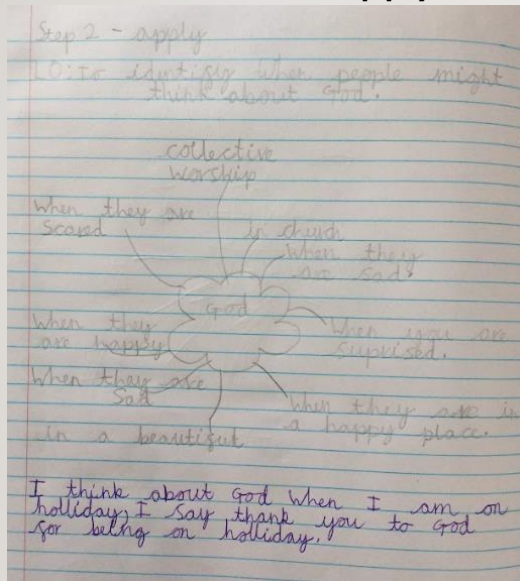 Step 2 - apply
LO: To identify when people might
think about God.
collective
worship
When they are
scared
in church
When they
are sad.
God
When they
are happy
When you are
suprised.
When they are
Sad
When they are in
a happy place.
in a beautiful
I think about God when I am on
holliday, I say thank you to God
for being on holliday.